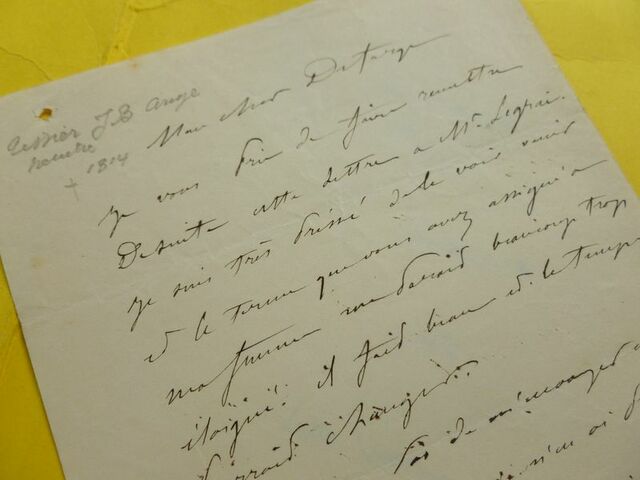 Tessier J B Ange
peintre
† 1814
Mon cher Detarge
Je vous prie de faire remettre
De suite cette lettre a Mr. Legrai.
Je suis très pressé de le voir venir
et le terme que vous avez assigné a
ma femme me parait beaucoup trop
éloigné. il fait beau et le temps
changer.
pas de m'
n'en ai